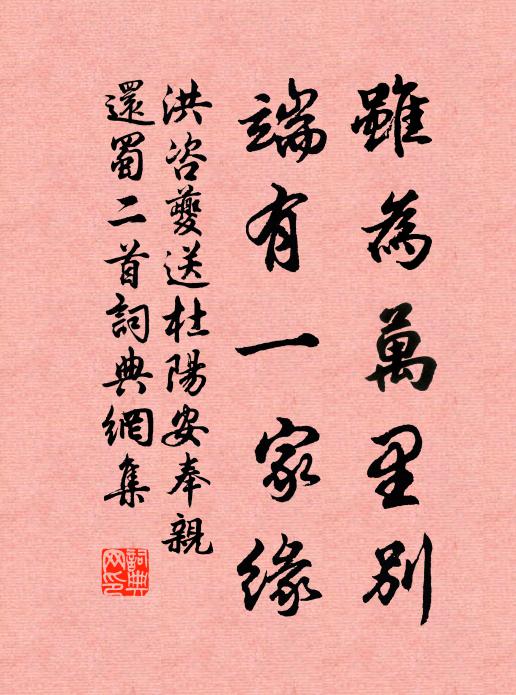 雖為萬里別
端有一家緣
洪咨夔送杜陽安奉親
還蜀二首詞典網集
詞典
网印